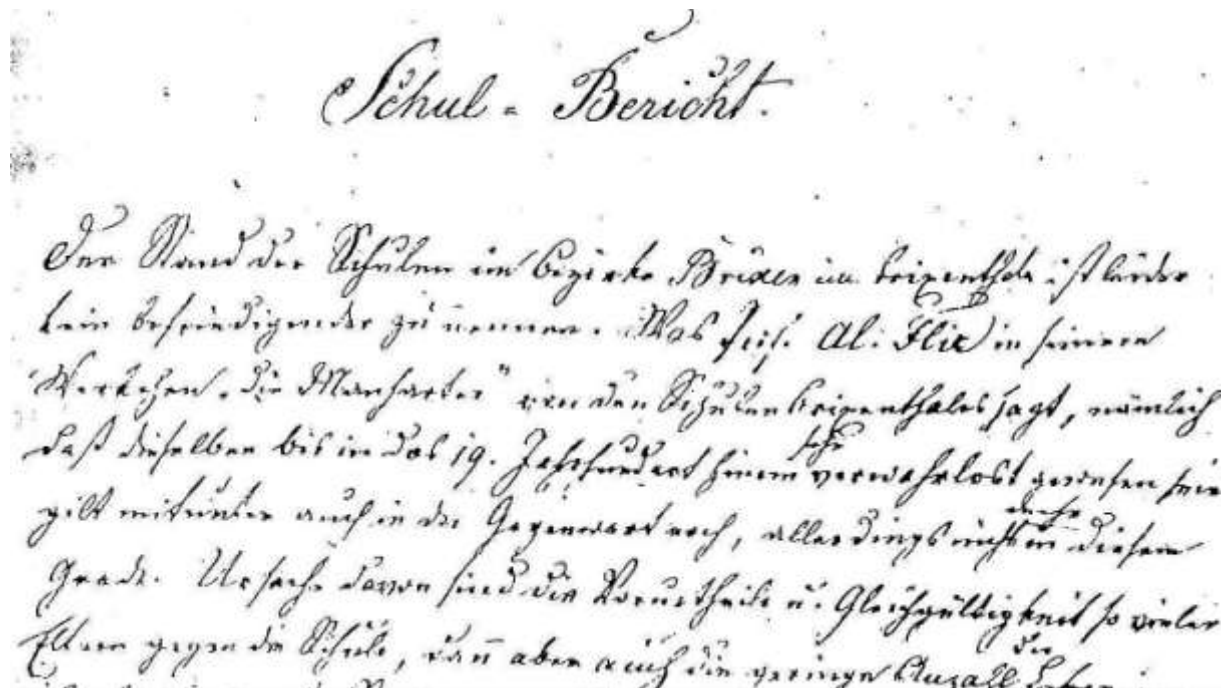 Schul = Bericht.
Der Stand der Schulen im Bezirke Brixen im Brixenthale ist leider
kein befriedigender zu nennen. Was Prof. Al: Flir in seinem
Werkchen „die Manharter" von den Schulen Brixenthales sagt, nämlich
daß dieselben bis in das 19. Jahrhundert hinein sehr verwahrlost gewesen seien
gilt mitunter auch in der Gegenwart noch, allerdings nicht mehr in diesem
Grade. Ursache davon sind die Vorurtheile u. Gleichgültigkeit so vieler
Eltern gegen die Schule, dañ aber auch die geringe Anzall der